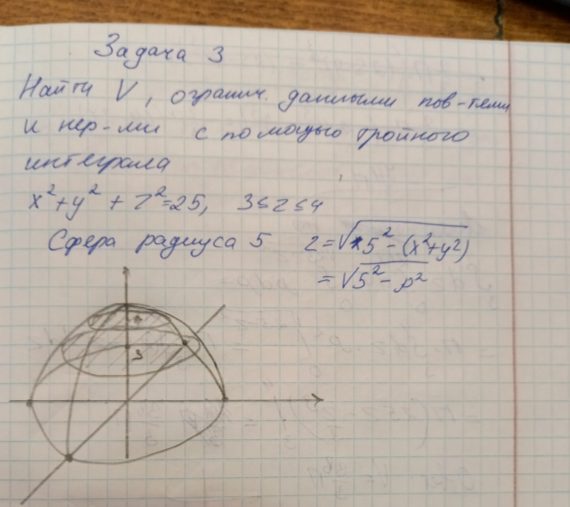 Задача 3
Найти V, огранич. данными пов-тями
и нер-ми с помощью тройного
интеграла
x²+y²+z²=25, 3≤z≤4
Сфера радиуса 5 z=√5²-(x²+y²)
=√5²-ρ²
4
3